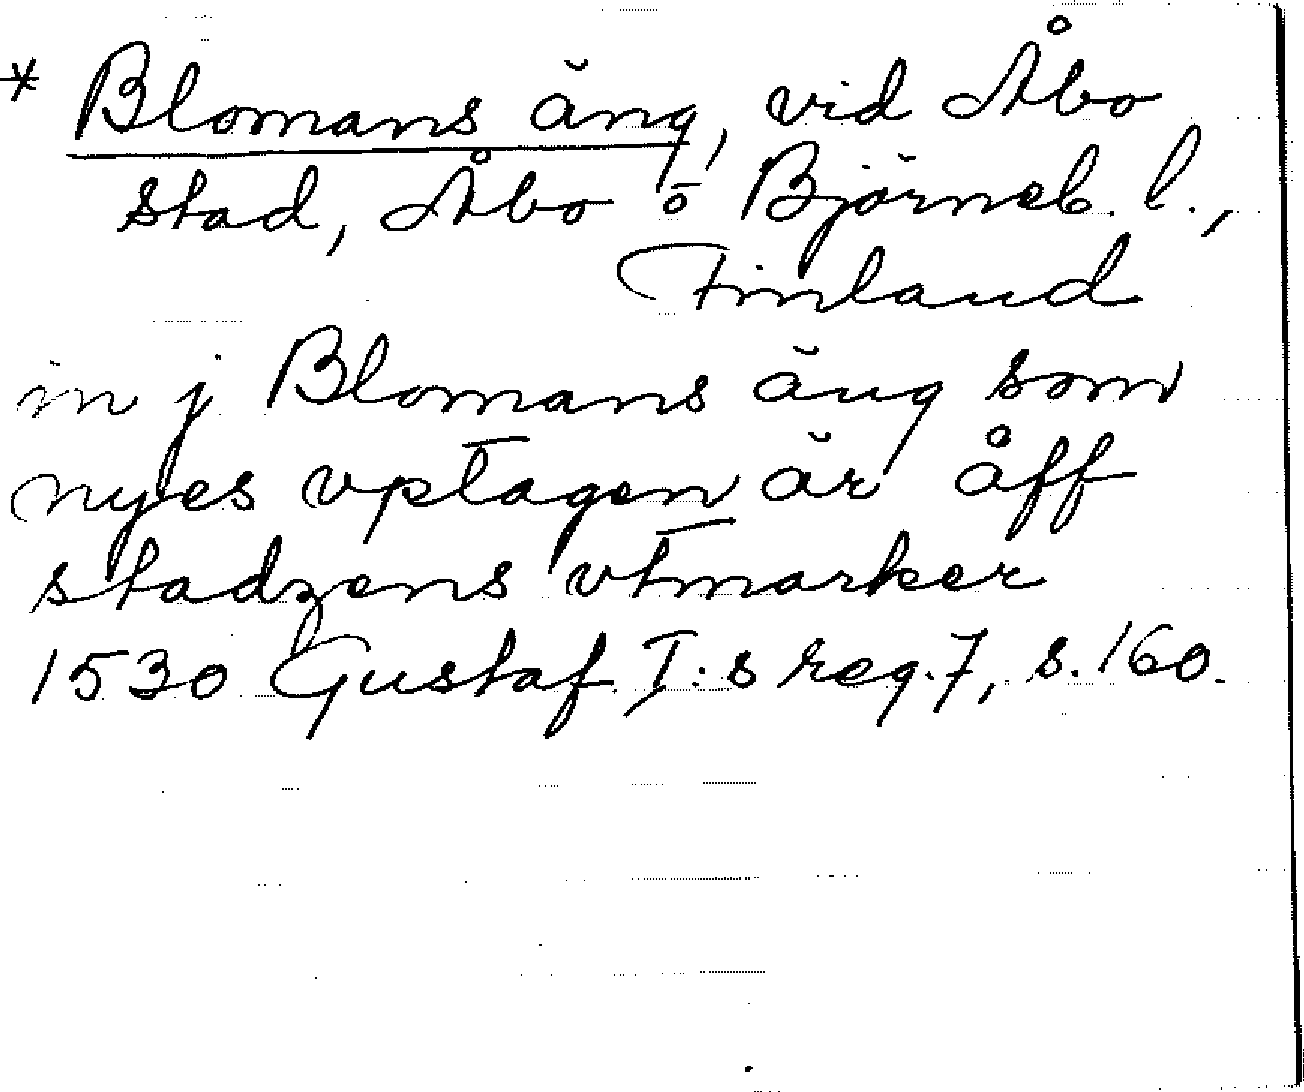 * Blomans äng, vid Åbo
stad, Åbo o Björneb. l.,
Finland
in j Blomans äng som
nyes vptagen är åff
stadzens vtmarker
1530 Gustaf I:s reg. 7, s. 160.